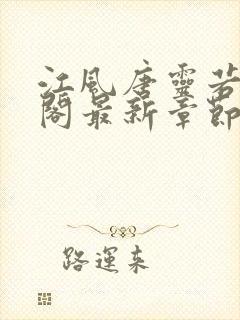 江風唐靈若
閣最新章節
路運來